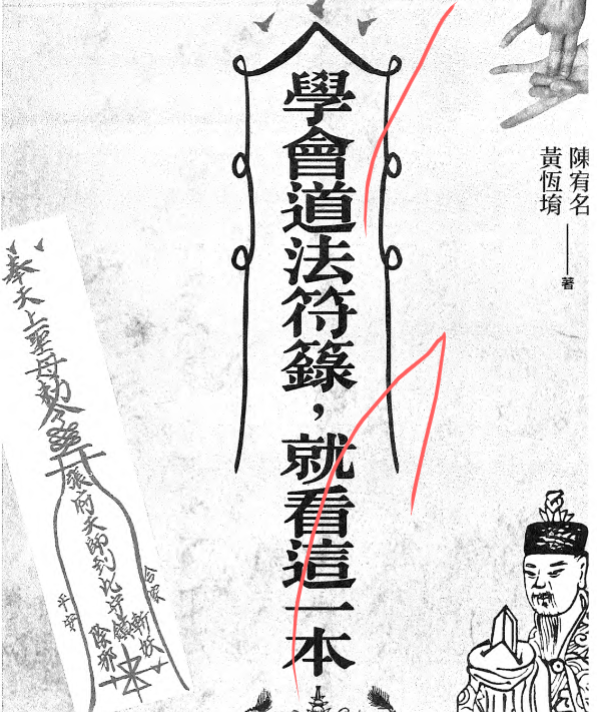 學會道法符籙，就看這一本
陳宥名
黃恆堉
著
奉天上聖母勅令
張府天師到此安鎮
斬妖
除邪
合家
平安